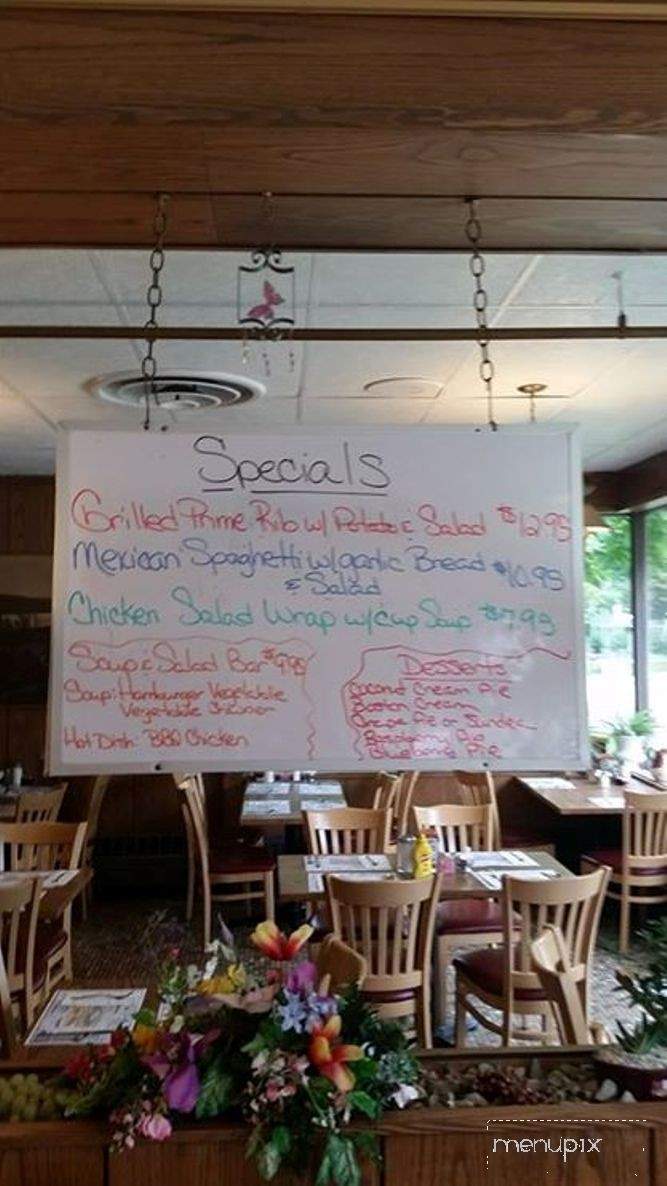 Specials
Grilled Prime Rib w/ Potato & Salad $12.95
Mexican Spaghetti w/garlic Bread $10.95
& Salad
Chicken Salad Wrap w/cup Soup $7.95
Soup & Salad Bar $9.95
Soup: Hamburger Vegetable
Vegetable
Hot Dish: BBQ Chicken
Desserts
Coconut Cream Pie
Boston Cream
Pie or Sundae
Raspberry Pie
Blueberry Pie
menupix